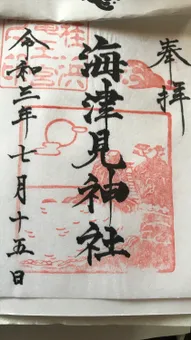 奉拝
海津見神社
令和三年七月十五日